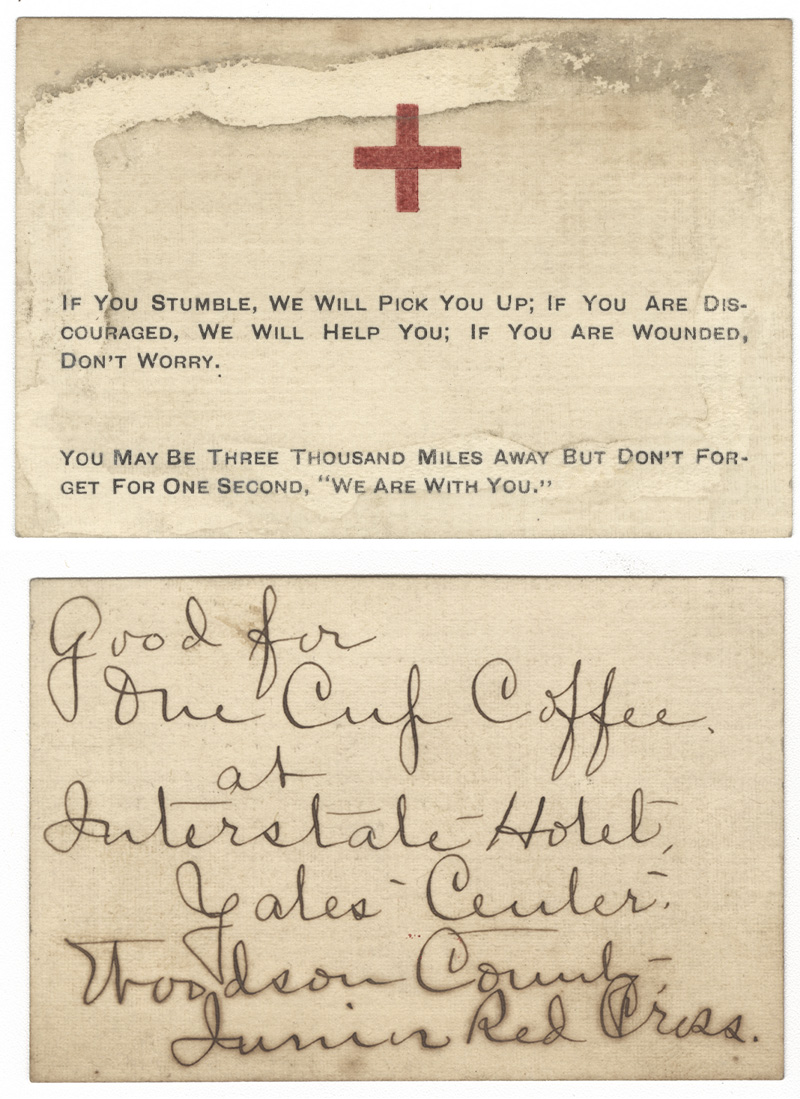 If You Stumble, We Will Pick You Up; If You Are Dis-
couraged, We Will Help You; If You Are Wounded,
Don't Worry.
You May Be Three Thousand Miles Away But Don't For-
get For One Second, "We Are With You."
Good for
One Cup Coffee.
at
Interstate Hotel,
Yates Center.
Woodson County
Junior Red Cross.